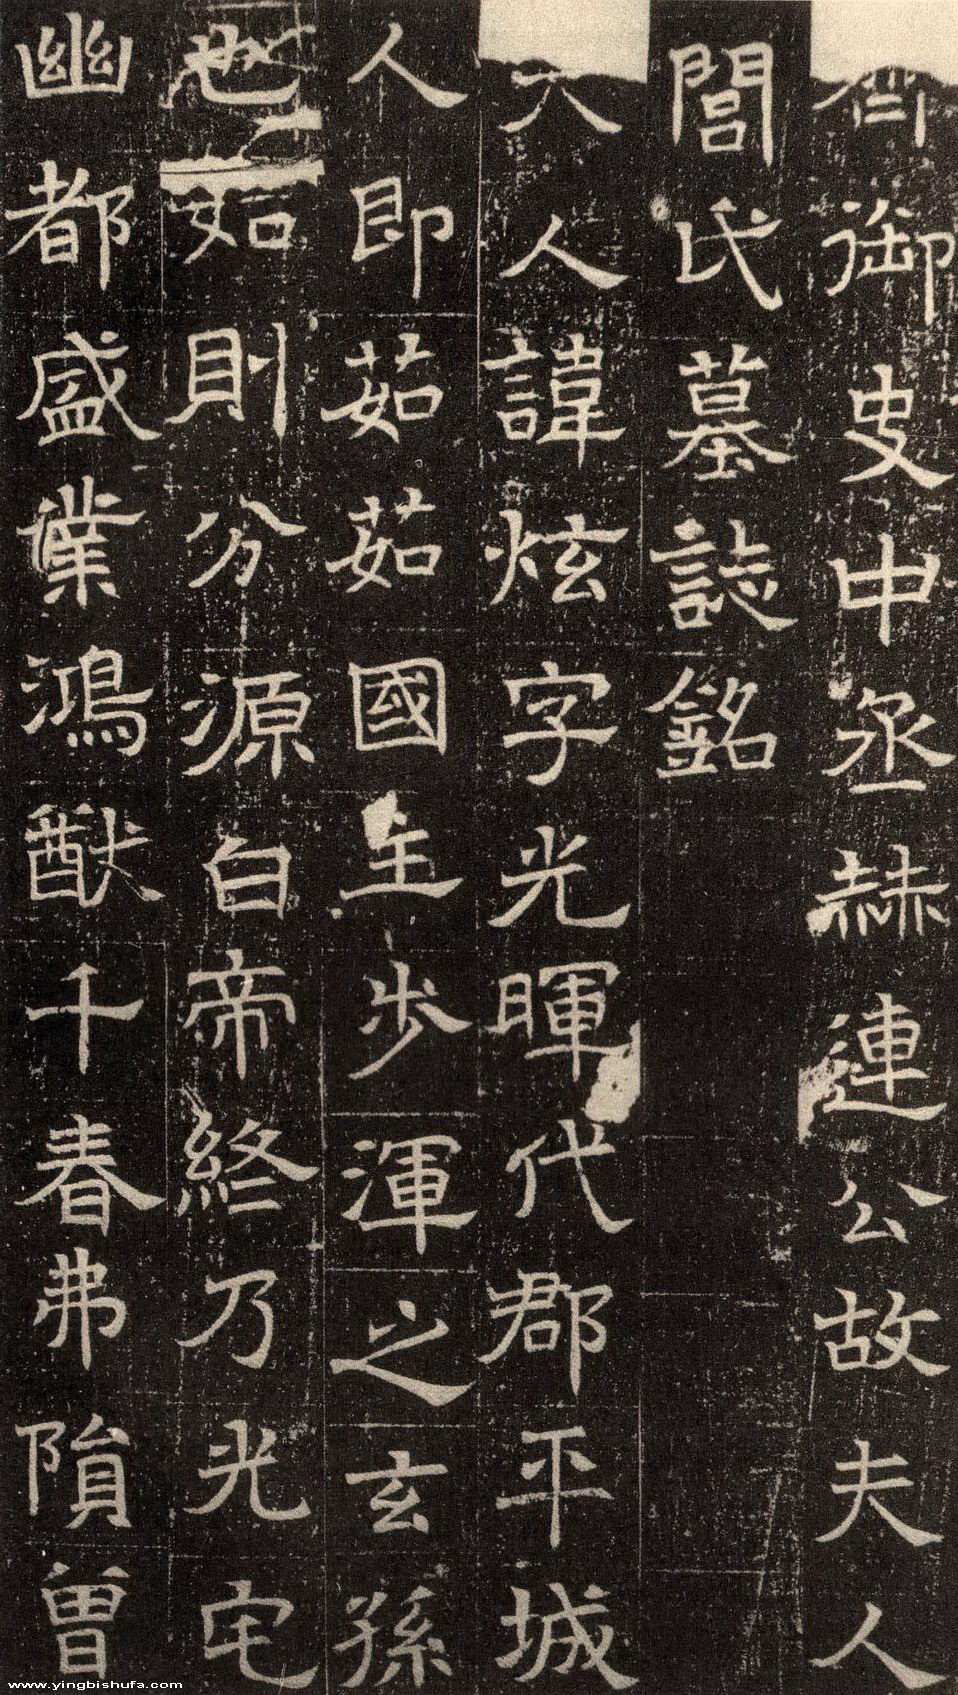 齊御史中丞赫連公故夫人
閭氏墓誌銘
夫人諱炫字光暉代郡平城
人即茹茹國主步渾之玄孫
也如則分源自帝終乃光宅
幽都盛業鴻猷千春弗隕曾
www.yingbishufa.com